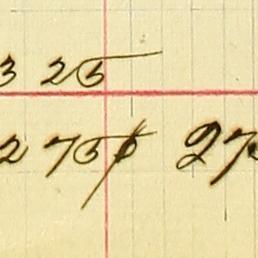 3 25
2 75 27